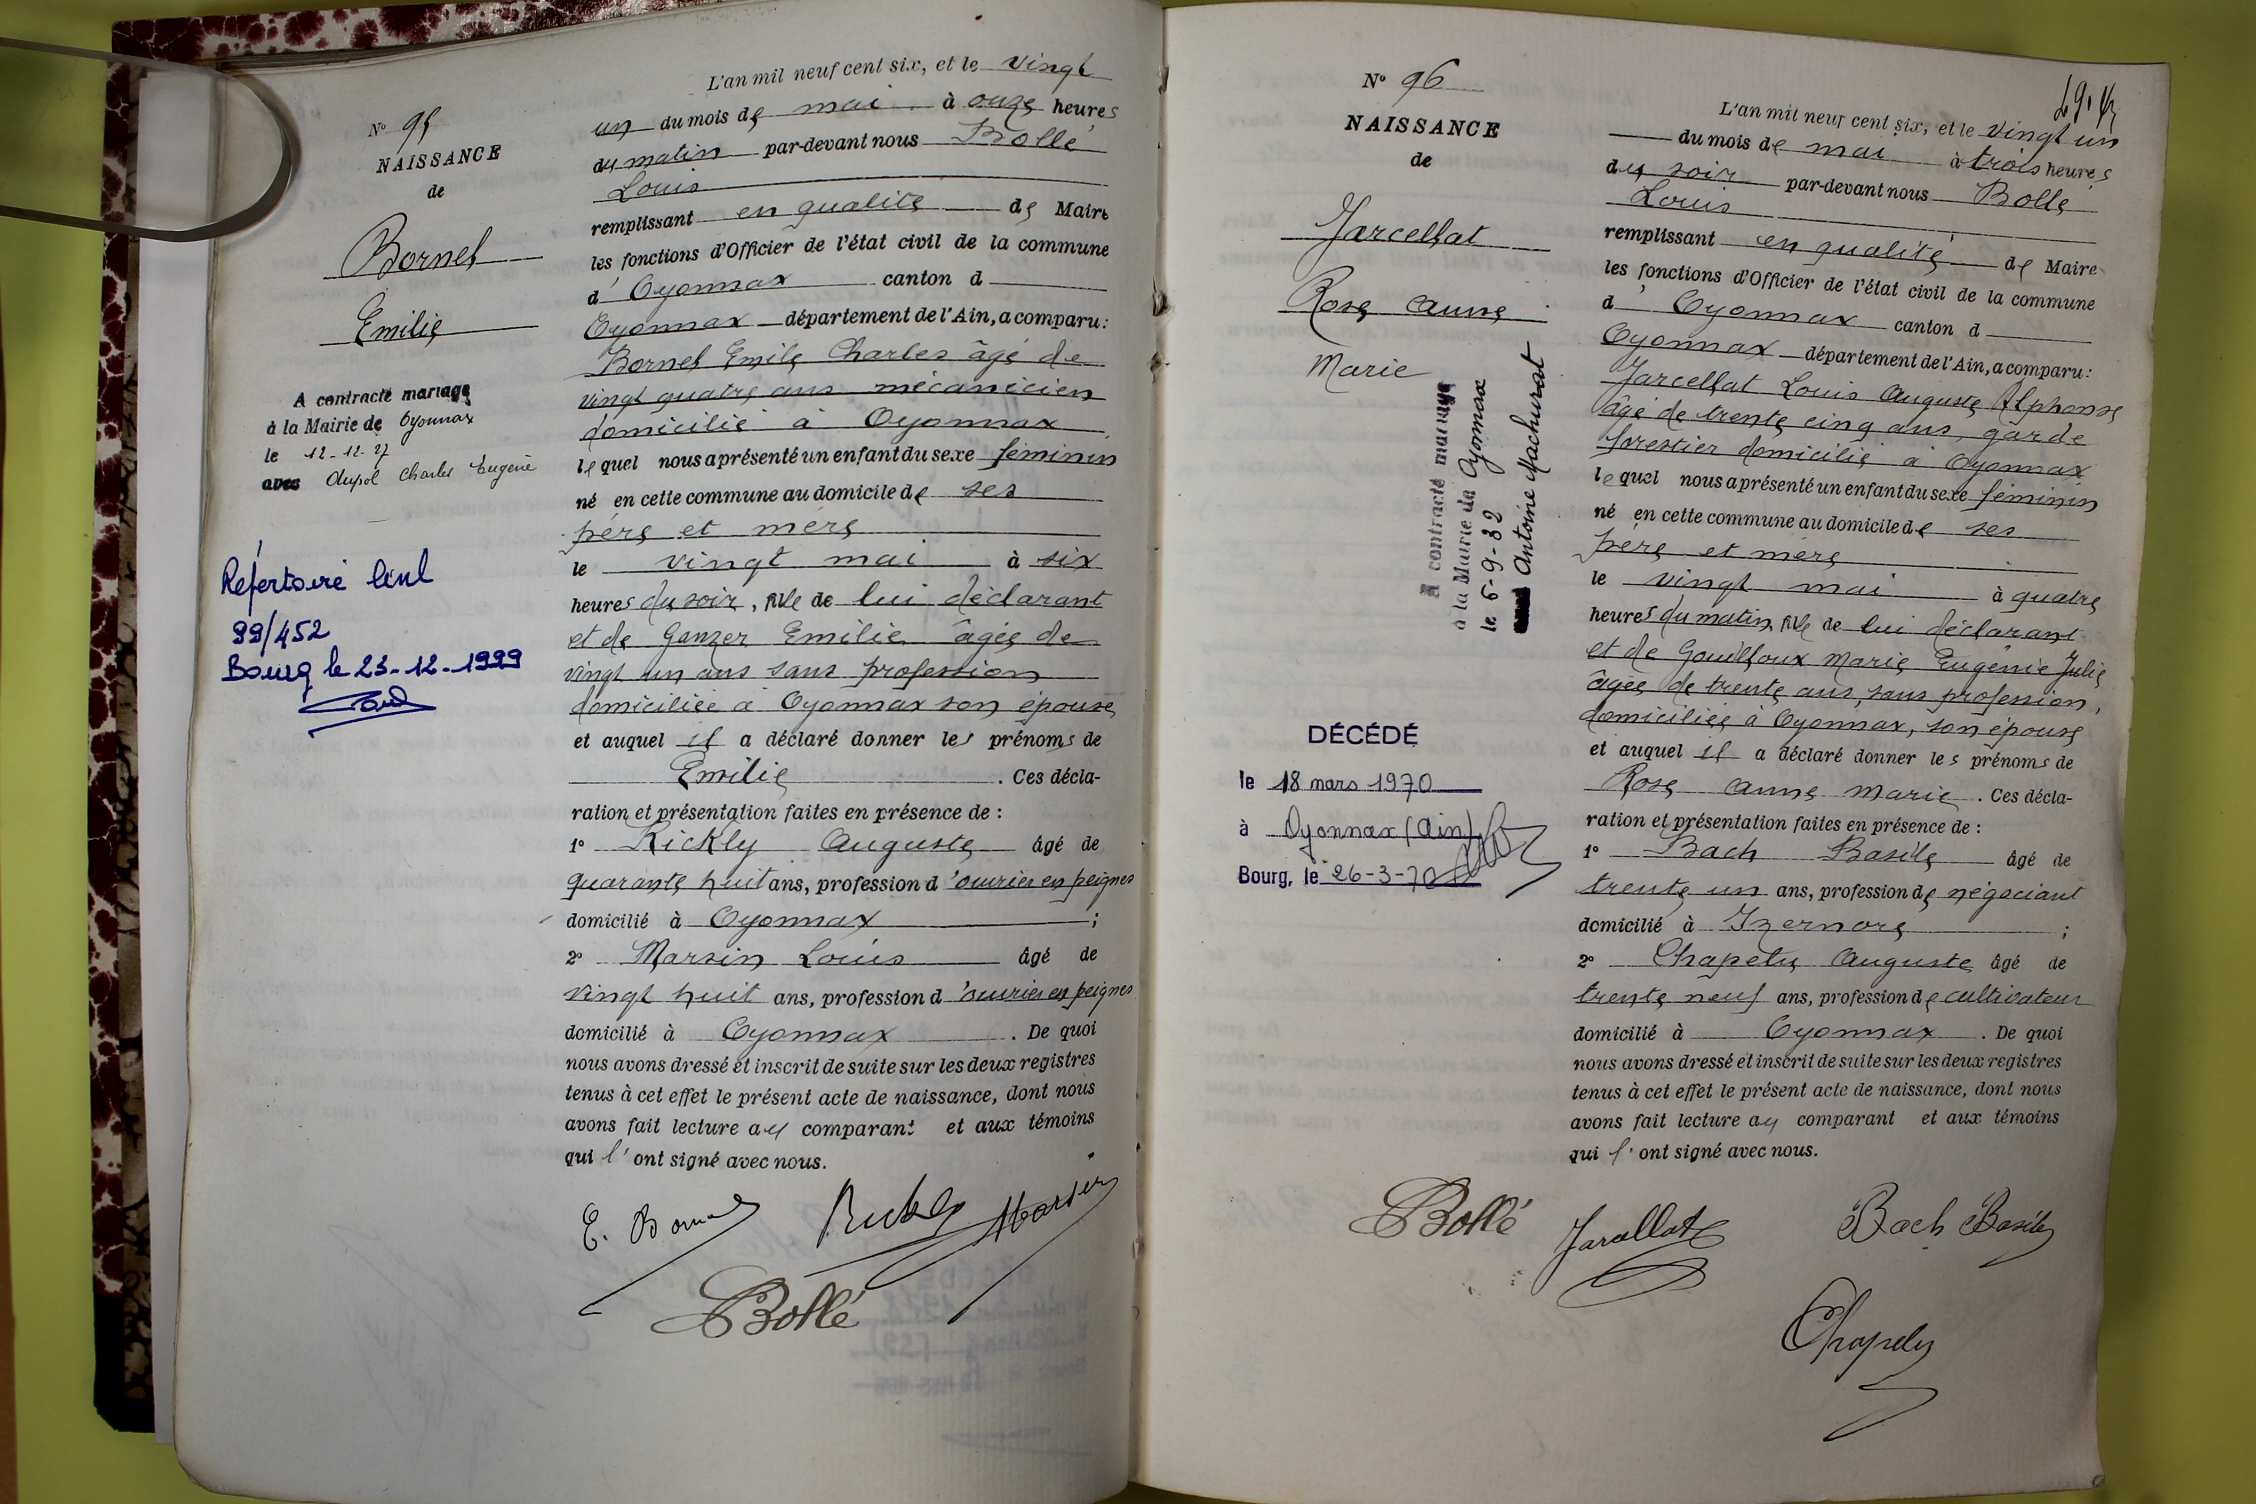 N° 95
NAISSANCE
de
Bornet
Emilie
A contracté mariage
à la Mairie de Oyonnax
le 12-11-27
avec Dupol Charles Eugène
Répertoire Civil
99/452
Bourg le 23-12-1999
L'an mil neuf cent six, et le vingt
un du mois de mai à onze heures
du matin par-devant nous Bollé
Louis
remplissant en qualité de Maire
les fonctions d'Officier de l'état civil de la commune
d' Oyonnax canton d
Oyonnax département de l'Ain, a comparu:
Bornet Emile Charles âgé de
vingt quatre ans mécanicien
domicilié à Oyonnax
lequel nous a présenté un enfant du sexe féminin
né en cette commune au domicile de ses
père et mère
le vingt mai à six
heures du soir, fille de lui déclarant
et de Ganzer Emilie âgée de
vingt un ans sans profession
domiciliée à Oyonnax son épouse
et auquel il a déclaré donner les prénoms de
Emilie . Ces décla-
ration et présentation faites en présence de :
1° Rickly Auguste âgé de
quarante huit ans, profession d'ouvrier en peignes
domicilié à Oyonnax ;
2° Marsin Louis âgé de
vingt huit ans, profession d'ouvrier en peignes
domicilié à Oyonnax . De quoi
nous avons dressé et inscrit de suite sur les deux registres
tenus à cet effet le présent acte de naissance, dont nous
avons fait lecture au comparant et aux témoins
qui l'ont signé avec nous.
E. Bornet Rickly Marsin
Bollé
N° 96
NAISSANCE
de
Jarcellat
Rose Anne
Marie
A contracté mariage
à la Mairie de Oyonnax
le 6-9-32
avec Antoine Machurat
DÉCÉDÉ
le 18 mars 1970
à Oyonnax (Ain)
Bourg, le 26-3-70
L'an mil neuf cent six, et le vingt un
du mois de mai à trois heures
du soir par-devant nous Bollé
Louis
remplissant en qualité de Maire
les fonctions d'Officier de l'état civil de la commune
d' Oyonnax canton d
Oyonnax département de l'Ain, a comparu:
Jarcellat Louis Auguste Alphonse
âgé de trente cinq ans, garde
forestier domicilié à Oyonnax
lequel nous a présenté un enfant du sexe féminin
né en cette commune au domicile de ses
père et mère
le vingt mai à quatre
heures du matin, fille de lui déclarant
et de Gouilloux Marie Eugénie Julie
âgée de trente ans, sans profession,
domiciliée à Oyonnax, son épouse
et auquel il a déclaré donner les prénoms de
Rose Anne Marie . Ces décla-
ration et présentation faites en présence de :
1° Bach Basile âgé de
trente un ans, profession de négociant
domicilié à Izernore ;
2° Chapely Auguste âgé de
trente neuf ans, profession de cultivateur
domicilié à Oyonnax . De quoi
nous avons dressé et inscrit de suite sur les deux registres
tenus à cet effet le présent acte de naissance, dont nous
avons fait lecture au comparant et aux témoins
qui l'ont signé avec nous.
Bollé Jarcellat Bach Basile
Chapely